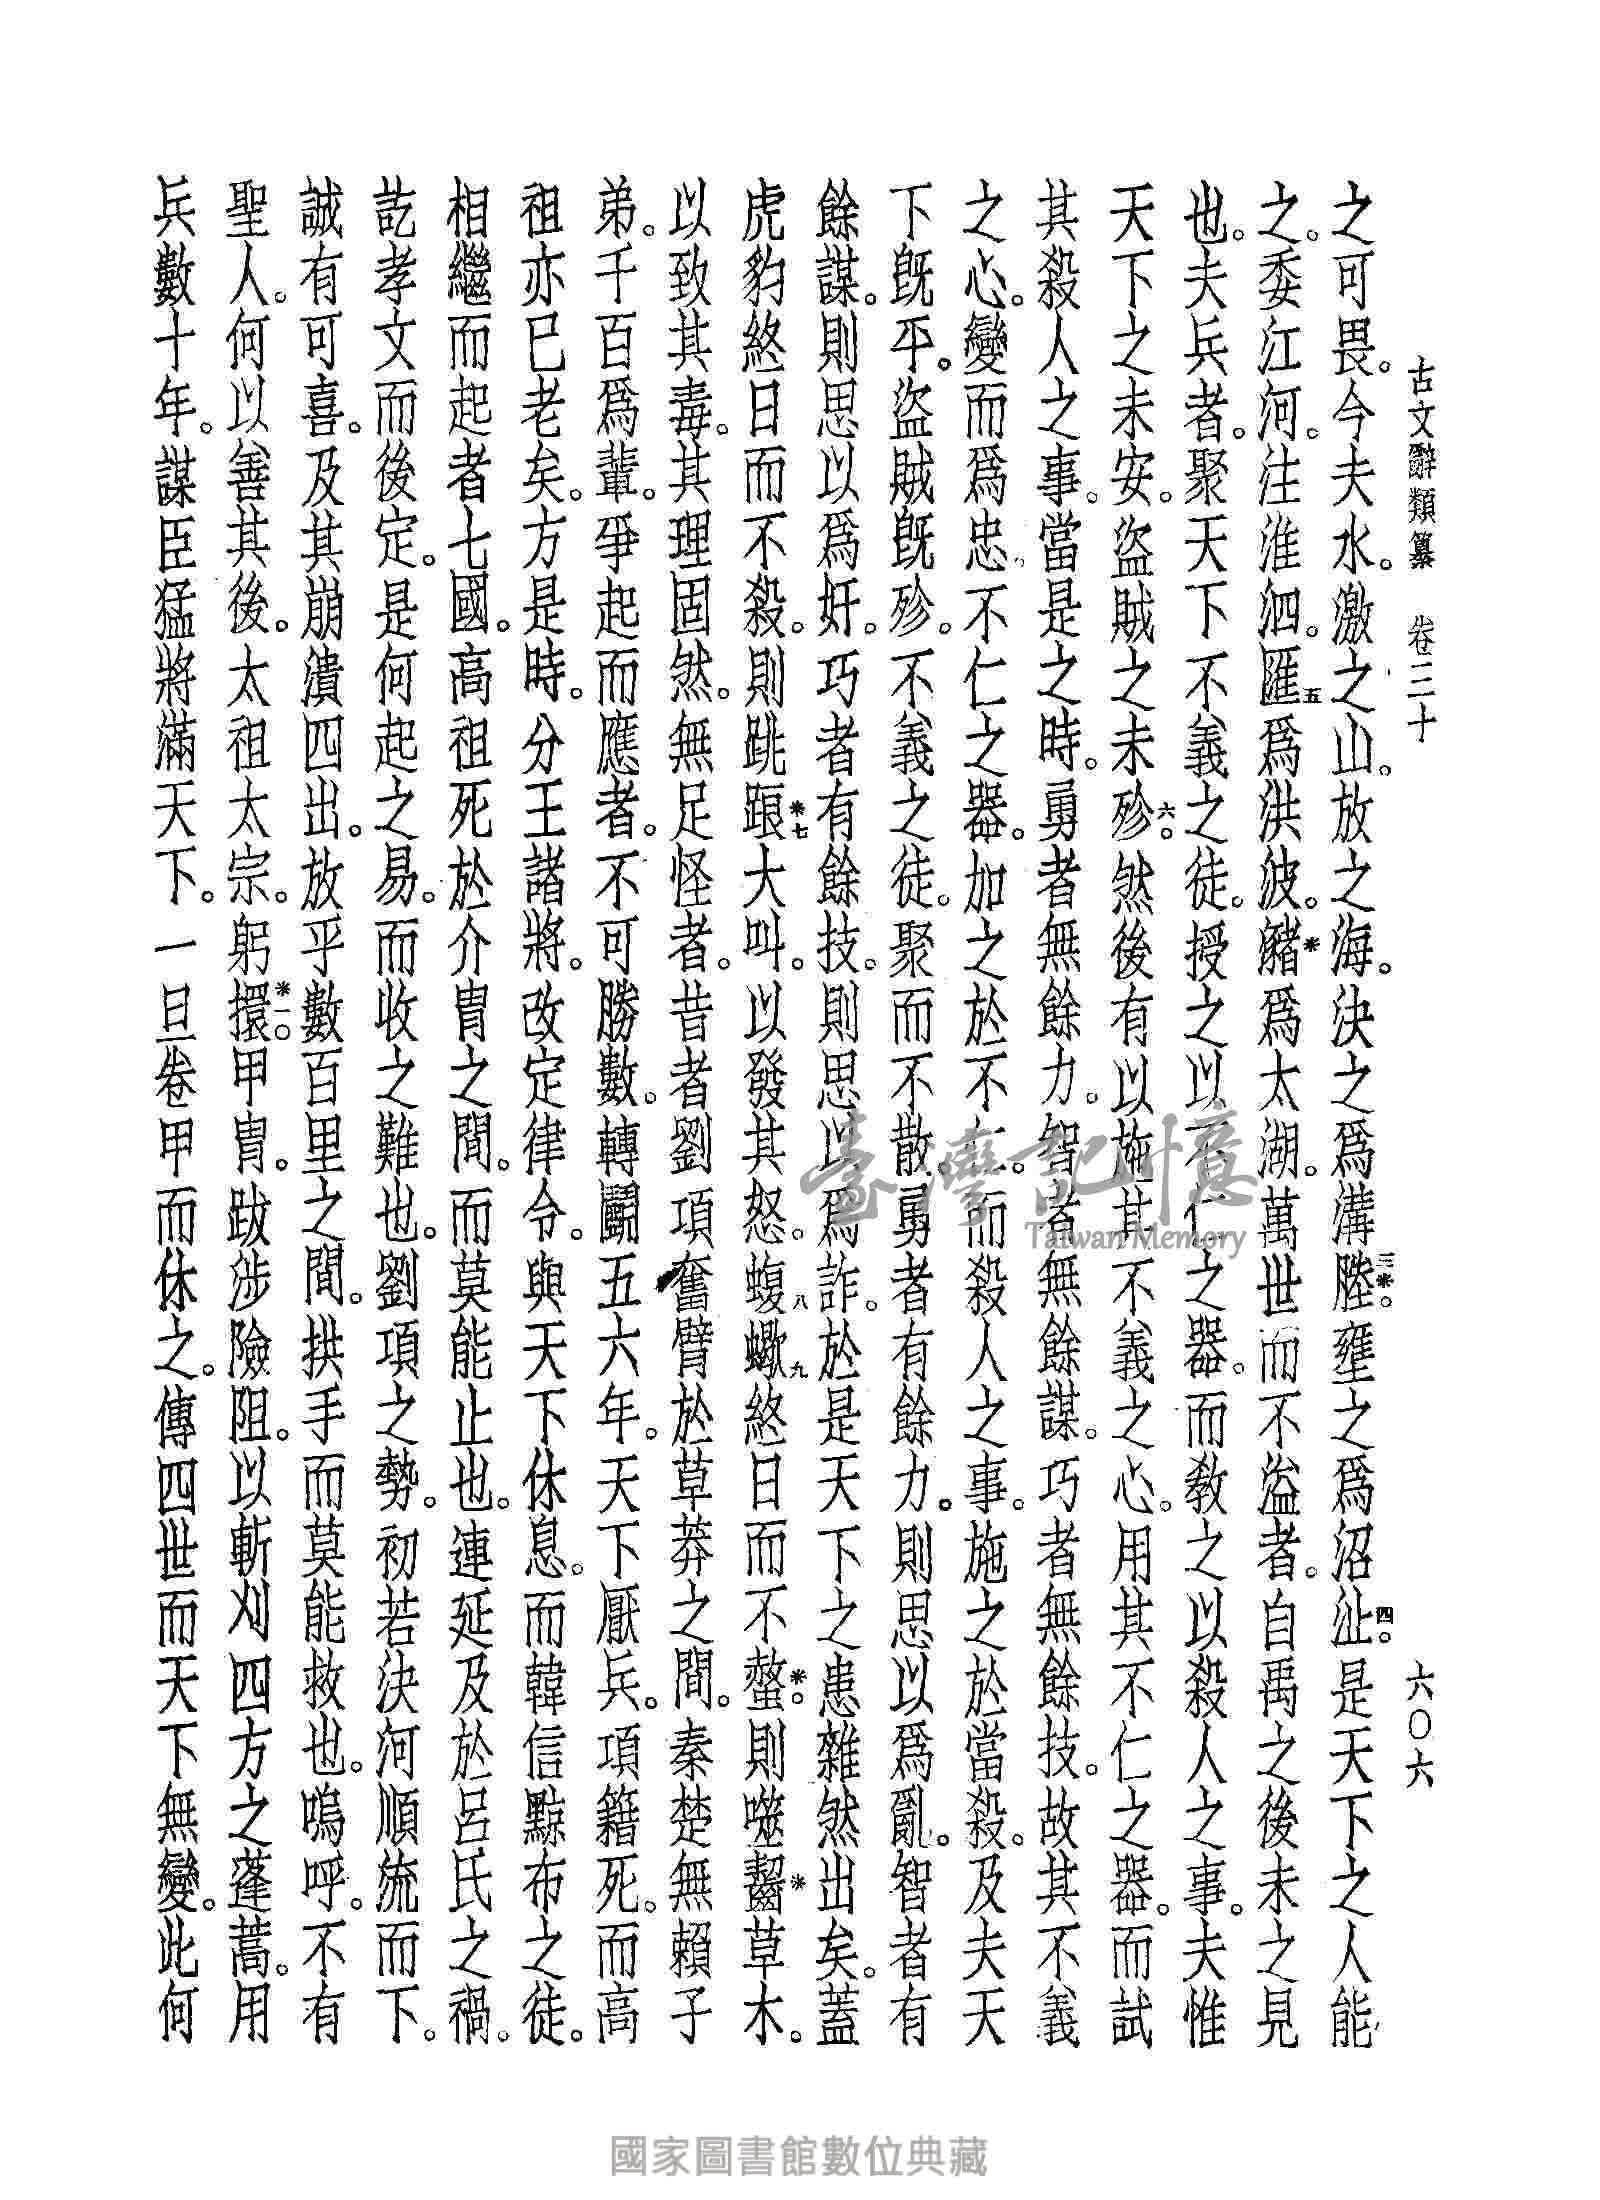 古文辭類纂　卷三十　六〇六
之可畏。今夫水。激之山。放之海。決之爲溝塍三※。壅之爲沼沚四。是天下之人能
之。委江河。注淮泗。匯五爲洪波。瀦※爲太湖。萬世而不溢者。自禹之後未之見
也。夫兵者。聚天下不義之徒。授之以不仁之器。而敎之以殺人之事。夫惟
天下之未安。盜賊之未殄六。然後有以施其不義之心。用其不仁之器。而試
其殺人之事。當是之時。勇者無餘力。智者無餘謀。巧者無餘技。故其不義
之心。變而爲忠。不仁之器。加之於不仁。而殺人之事。施之於當殺。及夫天
下旣平。盜賊旣殄。不義之徒。聚而不散。勇者有餘力。則思以爲亂。智者有
餘謀。則思以爲奸。巧者有餘技。則思以爲詐。於是天下之患雜然出矣。蓋
虎豹終日而不殺。則跳踉※七大叫。以發其怒。蝮八蠍九終日而不螫※。則噬齧※草木。
以致其毒。其理固然。無足怪者。昔者劉項奮臂於草莽之間。秦楚無賴子
弟。千百爲輩。爭起而應者。不可勝數。轉鬭五六年。天下厭兵。項籍死。而高
祖亦已老矣。方是時。分王諸將。改定律令。與天下休息。而韓信黥布之徒。
相繼而起者七國。高祖死於介胄之間。而莫能止也。連延及於呂氏之禍。
訖孝文而後定。是何起之易。而收之難也。劉項之勢。初若決河順流而下。
誠有可喜。及其崩潰四出。放乎數百里之間。拱手而莫能救也。嗚呼。不有
聖人。何以善其後。太祖太宗。躬擐※一〇甲胄。跋涉險阻。以斬刈四方之蓬蒿。用
兵數十年。謀臣猛將滿天下。一旦卷甲而休之。傳四世而天下無變。此何
臺灣記憶
Taiwan Memory
國家圖書館數位典藏